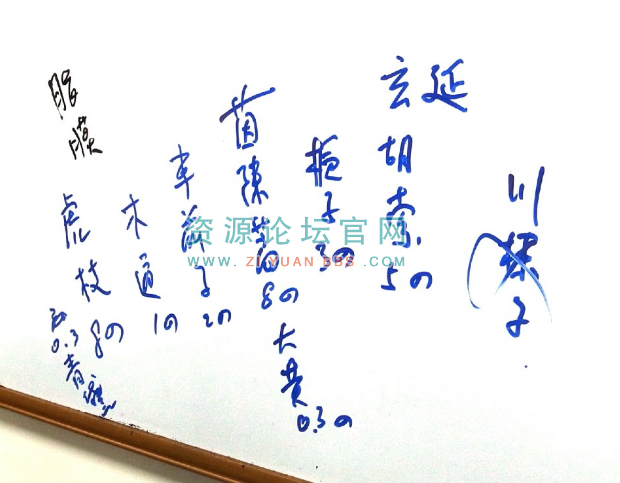 川楝子
玄延胡索 5の
梔子 3の
茵陳蒿 8の
大黄 0.3の
車前子 2の
木通 1の
虎杖 8の
0.3 青黛
膜
资源论坛官网
WWW.ZIYUANBBS.COM